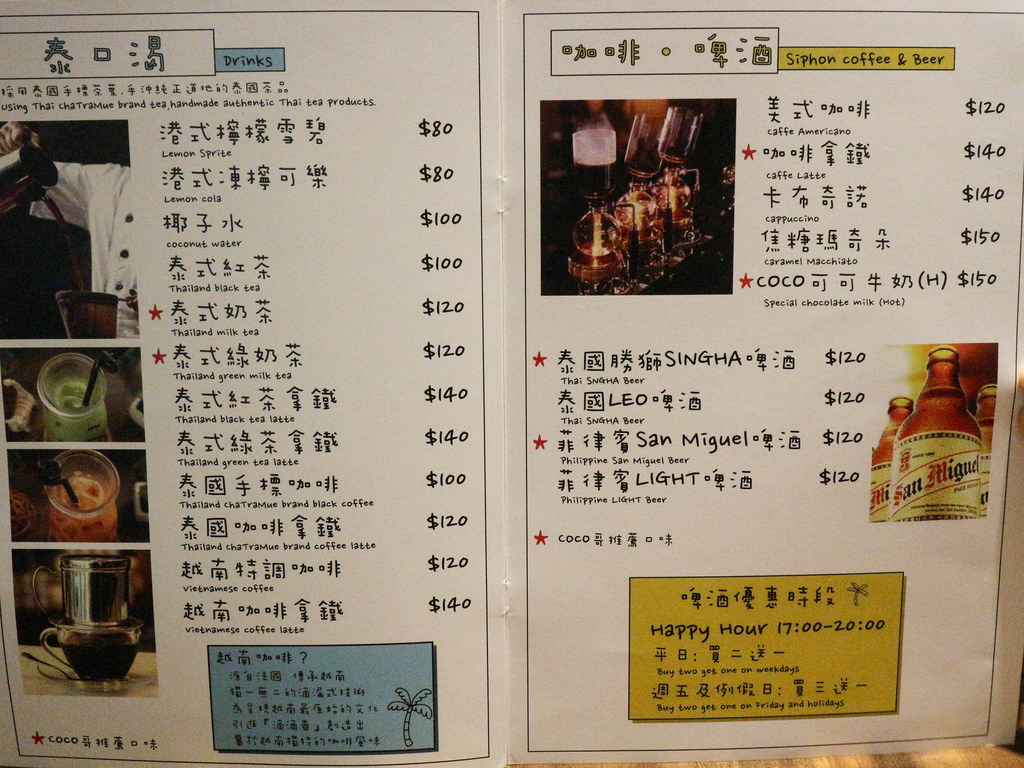 泰口渴
Drinks
採用泰國手標茶葉.手沖純正道地的泰國茶品
using Thai chaTraMue brand tea,handmade authentic Thai tea products.
港式檸檬雪碧 $80
Lemon Sprite
港式凍檸可樂 $80
Lemon cola
椰子水 $100
coconut water
泰式紅茶 $100
Thailand black tea
★泰式奶茶 $120
Thailand milk tea
★泰式綠奶茶 $120
Thailand green milk tea
泰式紅茶拿鐵 $140
Thailand black tea latte
泰式綠茶拿鐵 $140
Thailand green tea latte
泰國手標咖啡 $100
Thailand chaTraMue brand black coffee
泰國咖啡拿鐵 $120
Thailand chaTraMue brand coffee latte
越南特調咖啡 $120
Vietnamese coffee
越南咖啡拿鐵 $140
Vietnamese coffee latte
越南咖啡?
源自法國 傳承越南
獨一無二的滴漏式技術
為呈現越南最原始的文化
引進「滴滴壺」創造出
屬於越南獨特的咖啡風味
★COCO哥推薦口味
咖啡・啤酒
Siphon coffee & Beer
美式咖啡 $120
caffe Americano
★咖啡拿鐵 $140
caffe Latte
卡布奇諾 $140
cappuccino
焦糖瑪奇朵 $150
caramel Macchiato
★COCO可可牛奶(H) $150
Special chocolate milk (Hot)
★泰國勝獅SINGHA啤酒 $120
Thai SNGHA Beer
泰國LEO啤酒 $120
Thai SNGHA Beer
★菲律賓San Miguel啤酒 $120
Philippine San Miguel Beer
菲律賓LIGHT啤酒 $120
Philippine LIGHT Beer
San Miguel
PALE PILSEN
★COCO哥推薦口味
啤酒優惠時段
Happy Hour 17:00-20:00
平日:買二送一
Buy two get one on weekdays
週五及例假日:買三送一
Buy two get one on Friday and holidays